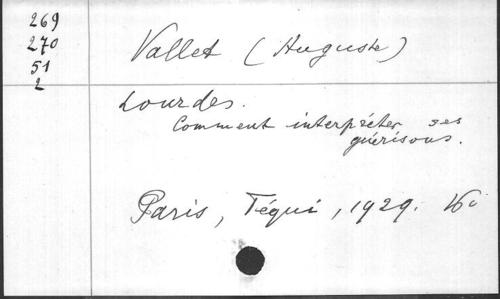 269
270
51
2
Vallet (Auguste)
Lourdes.
Comment interpréter ses
guérisons.
Paris, Téqui, 1929. 16º